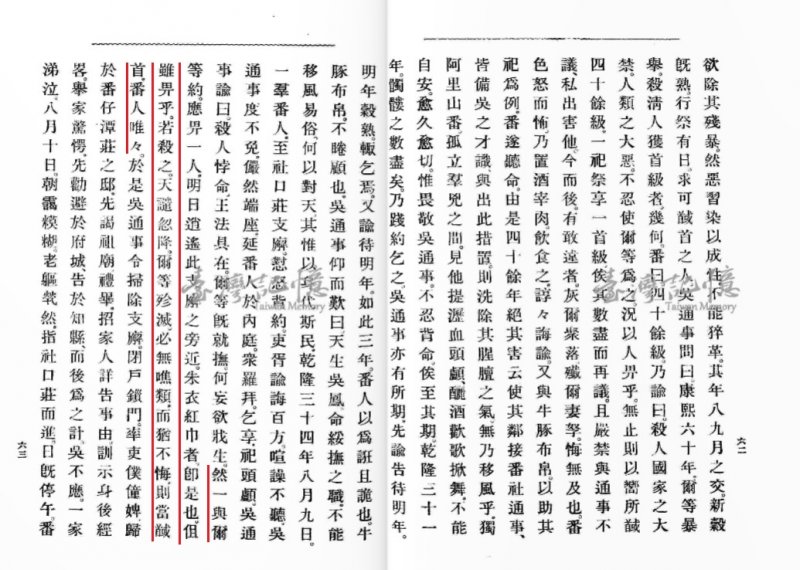 欲除其殘暴。然惡習染以成性。不能猝革。其年八九月之交。新穀
旣熟。行祭有日。求可馘首之人。吳通事問曰。康熙六十年。爾等暴
舉。殺淸人獲首級者。幾何。番曰。四十餘級。乃諭曰。殺人國家之大
禁。人類之大惡。不忍使爾等爲之。況以人畀乎。無止則以嚮所馘
四十餘級。一祀祭享一首級。俟其數盡而再議。且嚴禁與通事不
議。私出害他。今而後。有敢違者。灰爾衆落。殲爾妻孥。悔無及也。番
色怒而怖。乃置酒宰肉。飮食之。諄々誨諭。又與牛豚布帛。以助其
祀爲例。番遂聽命。由是四十餘年。絕其害云。使其鄰接番社通事、
皆備吳之才識。與出此措置。則洗除其腥膻之氣。無乃移風乎。獨
阿里山番。孤立羣兇之間。見他提瀝血頭顱。釃酒歡歌掀舞。不能
自安。愈久愈切。惟畏敬吳通事。不忍背命。俟至其期。乾隆三十一
年。髑髏之數盡矣。乃踐約乞之。吳通事亦有所期。先諭告待明年。
六二
明年穀熟。輒乞焉。又諭待明年。如此三年。番人以爲誑且詭也。牛
豚布帛。不睠顧也。吳通事仰而歎曰。天生吳鳳。命綏撫之職。不能
移風易俗。何以對天。其惟以身代斯民。乾隆三十四年八月九日。
一羣番人。至社口莊支廨。懇惣背約。吏胥諭誨百方。喧譟不聽。吳
通事度不免。儼然端座。延番人於內庭。衆羅拜。乞享祀頭顱。吳通
事諭曰。殺人悖命。王法具在。爾等旣就撫。何妄欲戕生。然一與爾
等約。應畀一人。明日逍遙此廨之旁近。朱衣紅巾者。卽是也。但
雖畀乎。若殺之。天譴忽降。爾等殄滅。必無噍類。而猶不悔。則當馘
首。番人唯々。於是吳通事令掃除支廨。閉戶鎖門。率吏僕僮婢歸
於番仔潭莊之邸。先謁祖廟禮畢。招家人。詳告事由。訓示身後經
畧。舉家驚愕。先勸避於府城。告於知縣。而後爲之計。吳不應。一家
涕泣。八月十日。朝靄糢糊。老軀煢然。指社口莊而進。日旣停午。番
六三
臺灣記憶
Taiwan Memory
臺灣記憶
Taiwan Memory